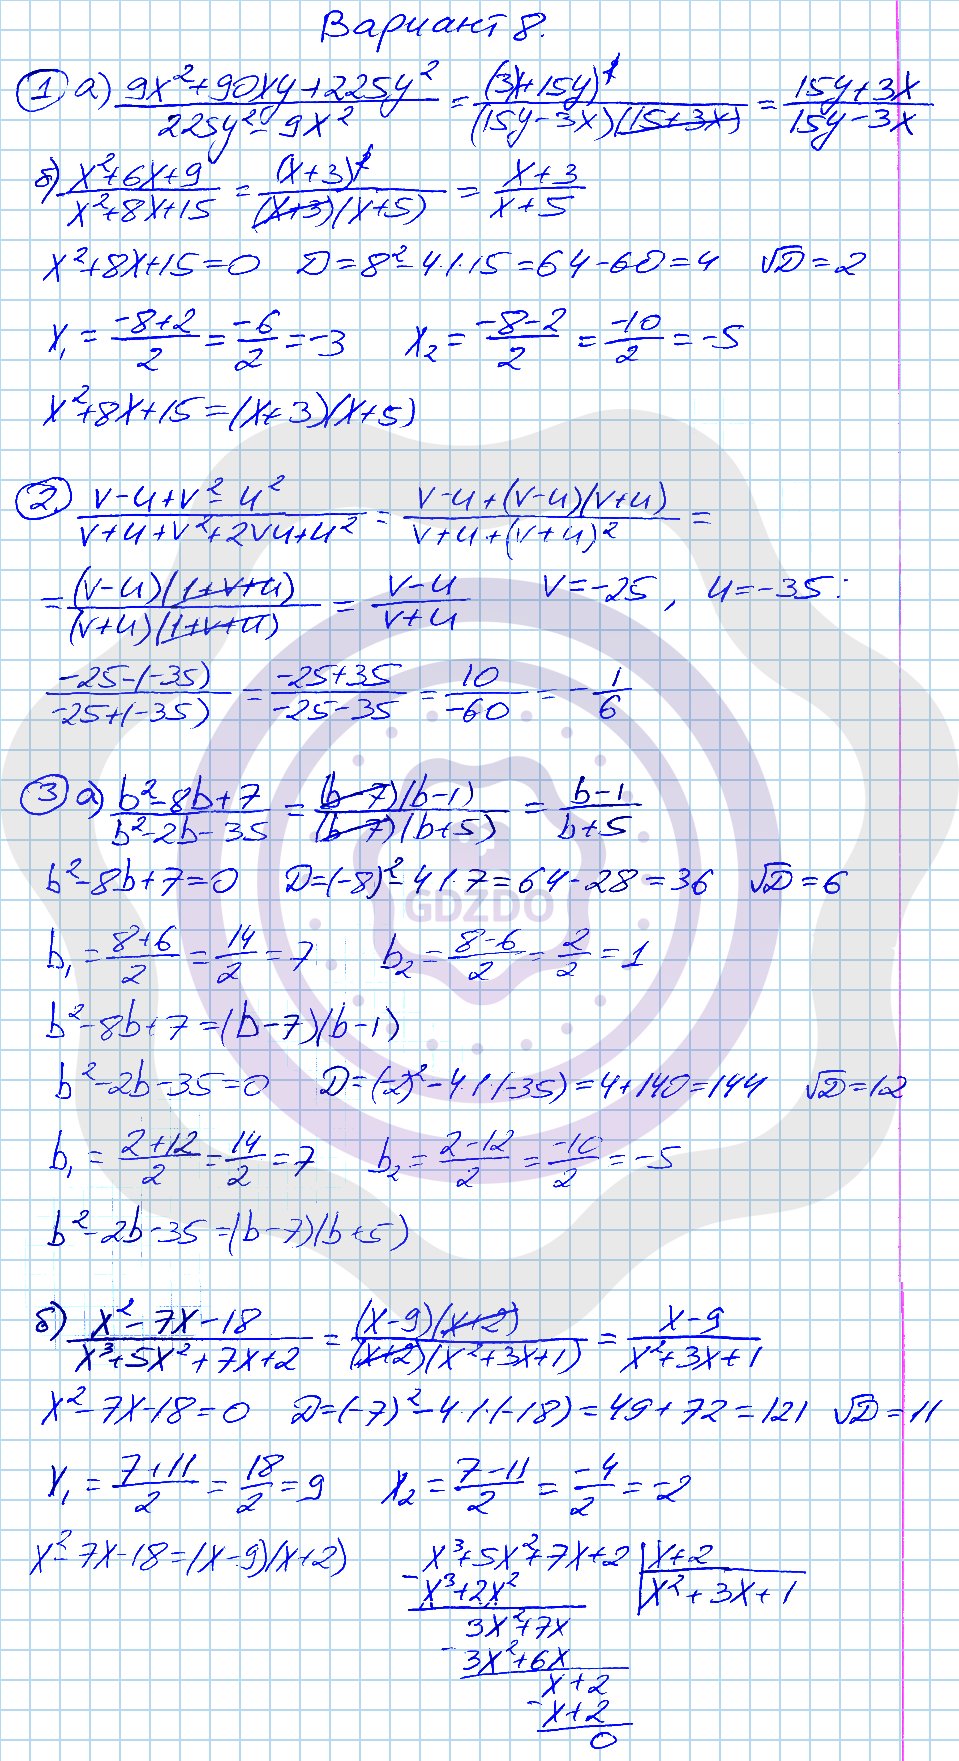 Вариант 8.
1 а) (9x²+90xy+225y²)/(225y²-9x²) = (3x+15y)²/((15y-3x)(15+3x)) = (15y+3x)/(15y-3x)
б) (x²+6x+9)/(x²+8x+15) = (x+3)²/((x+3)(x+5)) = (x+3)/(x+5)
x²+8x+15=0 D=8²-4·1·15=64-60=4 √D=2
x₁=(-8+2)/2=-6/2=-3 x₂=(-8-2)/2=-10/2=-5
x²+8x+15=(x+3)(x+5)
2 (v-u+v²-u²)/(v+u+v²+2vu+u²) = (v-u+(v-u)(v+u))/(v+u+(v+u)²) =
= ((v-u)(1+v+u))/((v+u)(1+v+u)) = (v-u)/(v+u) v=-25, u=-35:
(-25-(-35))/(-25+(-35)) = (-25+35)/(-25-35) = 10/-60 = -1/6
3 а) (b²-8b+7)/(b²-2b-35) = ((b-7)(b-1))/((b-7)(b+5)) = (b-1)/(b+5)
b²-8b+7=0 D=(-8)²-4·1·7=64-28=36 √D=6
GDZDO
b₁=(8+6)/2=14/2=7 b₂=(8-6)/2=2/2=1
b²-8b+7=(b-7)(b-1)
b²-2b-35=0 D=(-2)²-4·1·(-35)=4+140=144 √D=12
b₁=(2+12)/2=14/2=7 b₂=(2-12)/2=-10/2=-5
b²-2b-35=(b-7)(b+5)
б) (x²-7x-18)/(x³+5x²+7x+2) = ((x-9)(x+2))/((x+2)(x²+3x+1)) = (x-9)/(x²+3x+1)
x²-7x-18=0 D=(-7)²-4·1·(-18)=49+72=121 √D=11
x₁=(7+11)/2=18/2=9 x₂=(7-11)/2=-4/2=-2
x²-7x-18=(x-9)(x+2) x³+5x²+7x+2 | x+2
-x³+2x² | x²+3x+1
3x²+7x
-3x²+6x
x+2
-x+2
0